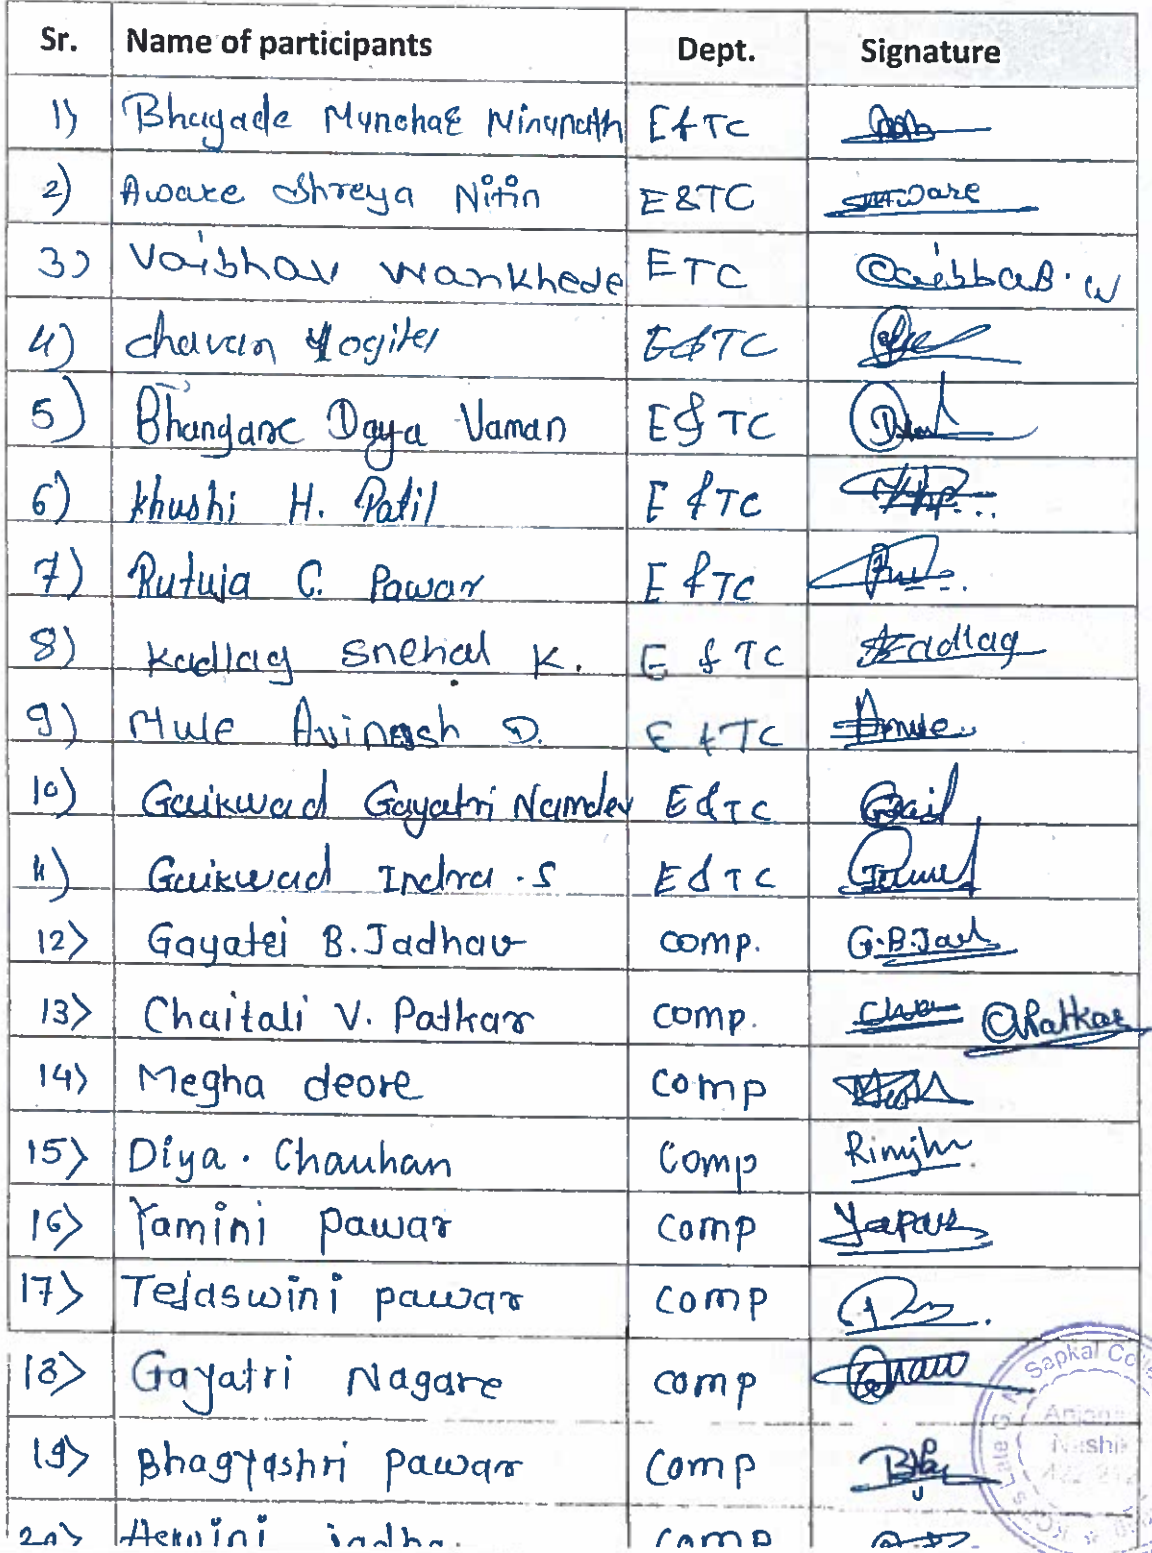 Sr. Name of participants Dept. Signature
1) Bhagade Ninunath E&TC
2) Aware Shreya Nitin E&TC Aware
3) Vaibhav Wankhede ETC VaibhaB. W
4) Chavan Yogita E&TC
5) Bhangare Daya Vaman E&TC
6) Khushi H. Patil E&TC
7) Rutuja C. Pawar E&TC
8) Kadlag Snehal K. E&TC Kadlag
9) Mule Avinash D. E&TC
10) Gaikwad Gayatri Namdev E&TC
11) Gaikwad Indra .S E&TC
12) Gayatri B. Jadhav comp. G.B.Jad
13) Chaitali V. Patkar comp. CPatkar
14) Megha deore comp
15) Diya . Chauhan comp
16) Yamini pawar comp
17) Tejaswini pawar comp
18) Gayatri Nagare comp
19) Bhagyashri pawar comp
20) comp
Late G. N. Sapkal
Nashik